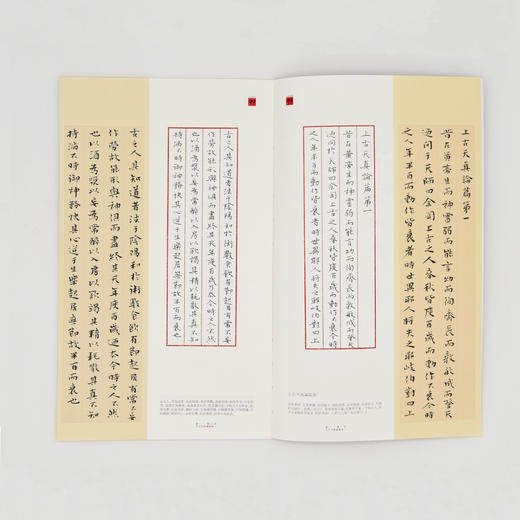 上古天真論篇第一
昔在黃帝生而神靈弱而能言幼而徇齊長而敦敏成而登天
迺問于天師曰余聞上古之人春秋皆度百歲而動作不衰今時
之人年半百而動作皆衰者時世異耶人將失之耶岐伯對曰上
上古天真論篇第一
昔在黃帝生而神靈弱而能言幼而徇齊長而敦敏成而登天
迺問於天師曰余聞上古之人春秋皆度百歲而動作不衰今時
之人年半百而動作皆衰者時世異耶人將失之耶岐伯對曰上
古之人其知道者法于陰陽和於術數食飲有節起居有常不妄
作勞故能形與神俱而盡終其天年度百歲乃去今時之人不然
也以酒為漿以妄為常醉以入房以欲竭其精以耗散其真不知
持滿不時御神務快其心逆于生樂起居無節故半百而衰也
古之人其知道者法于陰陽和於術數食飲有節起居有常不妄
作勞故能形與神俱而盡終其天年度百歲乃去今時之人不然
也以酒為漿以妄為常醉以入房以欲竭其精以耗散其真不知
持滿不時御神務快其心逆于生樂起居無節故半百而衰也